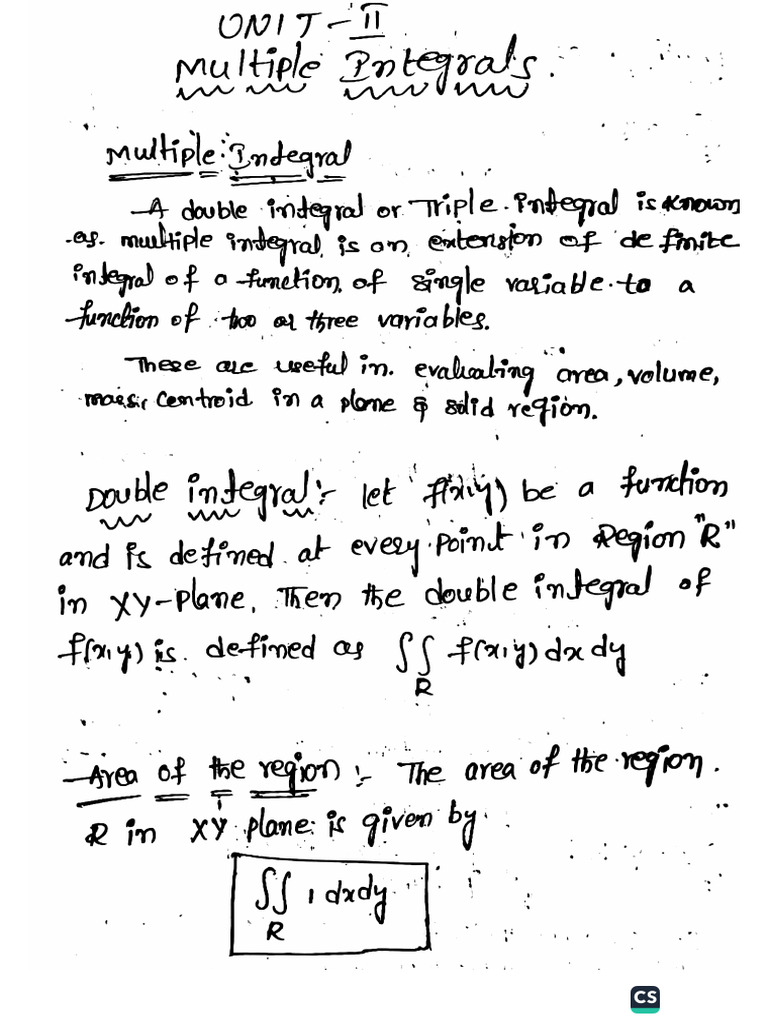 UNIT - II
Multiple Integrals.
Multiple Integral
A double integral or Triple Integral is known
as multiple integral, is an extension of definite
integral of a function, of single variable to a
function of two or three variables.
These are useful in evaluating area, volume,
mass, centroid in a plane & solid region.
Double integral :- let f(x,y) be a function
and is defined at every point in Region "R"
in XY-plane, Then the double integral of
f(x,y) is defined as ∬ f(x,y) dx dy
R
Area of the region :- The area of the region
R in XY plane is given by
∬ 1 dxdy
R
CS